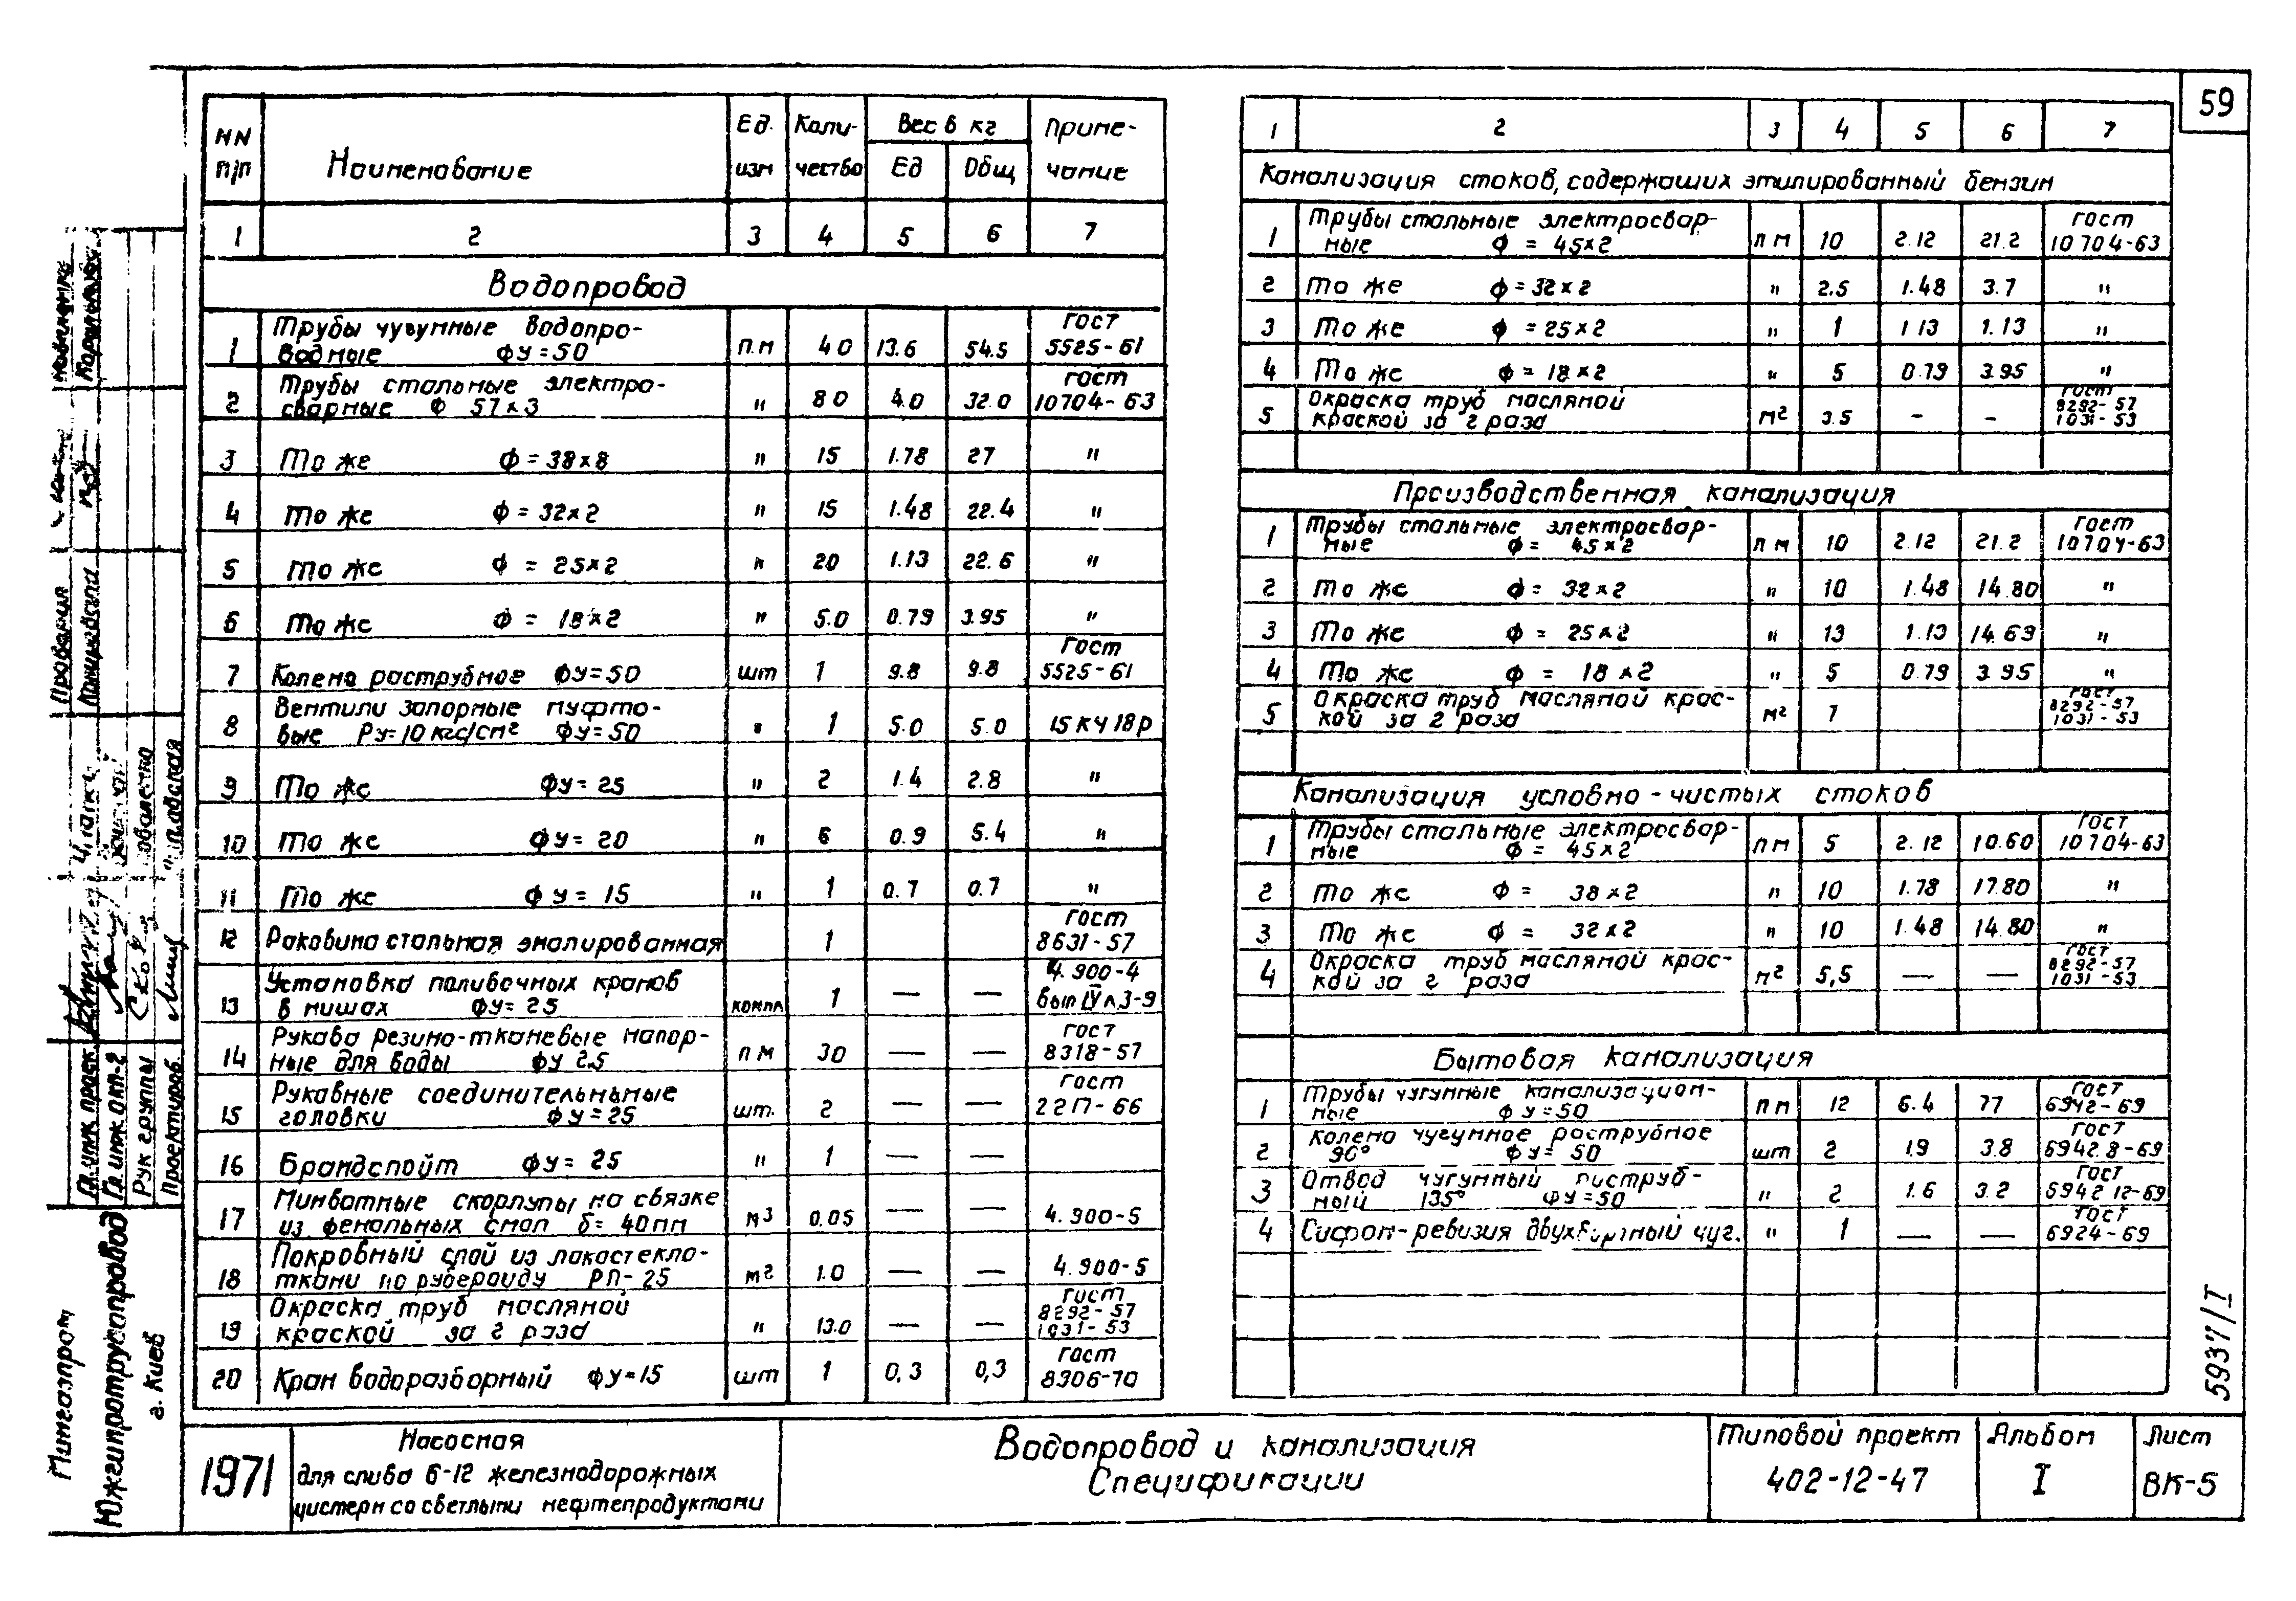 59
NN п/п Наименование Ед. изм Коли-чество Вес в кг Ед Общ Приме-чание
1 2 3 4 5 6 7
Водопровод
1 Трубы чугунные водопро-
водные Фу=50 п.м 40 13.6 54.5 гост 5525-61
2 Трубы стальные электро-
сварные Ф 57х3 " 80 4.0 32.0 гост 10704-63
3 То же ф=38х8 " 15 1.78 27 "
4 То же ф=32х2 " 15 1.48 22.4 "
5 То же ф = 25х2 " 20 1.13 22.6 "
6 То же ф = 18х2 " 5.0 0.79 3.95 "
7 Колено раструбное фу=50 шт 1 9.8 9.8 гост 5525-61
8 Вентили запорные муфто-
вые Ру=10 кгс/см² фу=50 " 1 5.0 5.0 15кч18р
9 То же фу=25 " 2 1.4 2.8 "
10 То же фу=20 " 6 0.9 5.4 "
11 То же фу=15 " 1 0.7 0.7 "
12 Раковина стальная эмалированная 1 гост 8631-57
13 Установка поливочных кранов
в нишах фу=25 компл 1 — — 4.900-4 вып IV л.3-9
14 Рукава резино-тканевые напор-
ные для воды фу 25 п м 30 — — гост 8318-57
15 Рукавные соединительньные
головки фу=25 шт. 2 — — гост 2217-66
16 Брандспойт фу=25 " 1 — —
17 Минватные скорлупы на связке
из фенольных смол δ=40мм м³ 0.05 — — 4.900-5
18 Покровный слой из лакостекло-
ткани по рубероиду РП-25 м² 1.0 — — 4.900-5
19 Окраска труб масляной
краской за 2 раза " 13.0 — — гост 8292-57 1031-53
20 Кран водоразборный фу=15 шт 1 0,3 0,3 гост 8906-70
1 2 3 4 5 6 7
Канализация стоков, содержащих этилированный бензин
1 Трубы стальные электросвар-
ные ф = 45х2 п м 10 2.12 21.2 гост 10704-63
2 То же ф=32х2 " 2.5 1.48 3.7 "
3 То же ф =25х2 " 1 1 13 1.13 "
4 То же ф=18х2 " 5 0.79 3.95 "
5 Окраска труб масляной
краской за 2 раза м² 3.5 — — гост 8292-57 1031-53
Производственная канализация
1 Трубы стальные электросвар-
ные ф= 45х2 п м 10 2.12 21.2 гост 10704-63
2 То же ф= 32х2 " 10 1.48 14.80 "
3 То же ф = 25х2 " 13 1.13 14.69 "
4 То же ф = 18х2 " 5 0.79 3.95 "
5 Окраска труб масляной крас-
кой за 2 раза м² 7 гост 8292-57 1031-53
Канализация условно-чистых стоков
1 Трубы стальные электросвар-
ные ф = 45х2 п м 5 2.12 10.60 гост 10704-63
2 То же ф = 38х2 " 10 1.78 17.80 "
3 То же ф = 32х2 " 10 1.48 14.80 "
4 Окраска труб масляной крас-
кой за 2 раза м² 5,5 — — гост 8292-57 1031-53
Бытовая канализация
1 Трубы чугунные канализацион-
ные фу=50 п м 12 6.4 77 гост 6942-69
2 Колено чугунное раструбное
90° фу= 50 шт 2 1.9 3.8 гост 6942.8-69
3 Отвод чугунный раструб-
ный 135° фу=50 " 2 1.6 3.2 гост 6942 12-69
4 Сифон-ревизия двухоборотный чуг. " 1 — — гост 6924-69
5937/I
1971
Насосная
для слива 6-12 железнодорожных
цистерн со светлыми нефтепродуктами
Водопровод и канализация
Спецификации
Типовой проект
402-12-47
Альбом
I
Лист
ВК-5
Мингазпром
Южгипротрубопровод
г. Киев
Гл. инж. проек.
Гл. инж. отп-2
Рук группы
Проектиров.
Проверил
Копировала